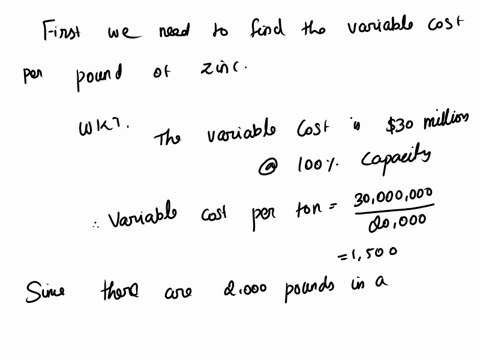 First we need to find the variable cost
per pound of zinc.
WKT. The variable cost is $30 million
@ 100% capacity
∴ Variable cost per ton = 30,000,000
20,000
= 1,500
Since there are 2,000 pounds in a